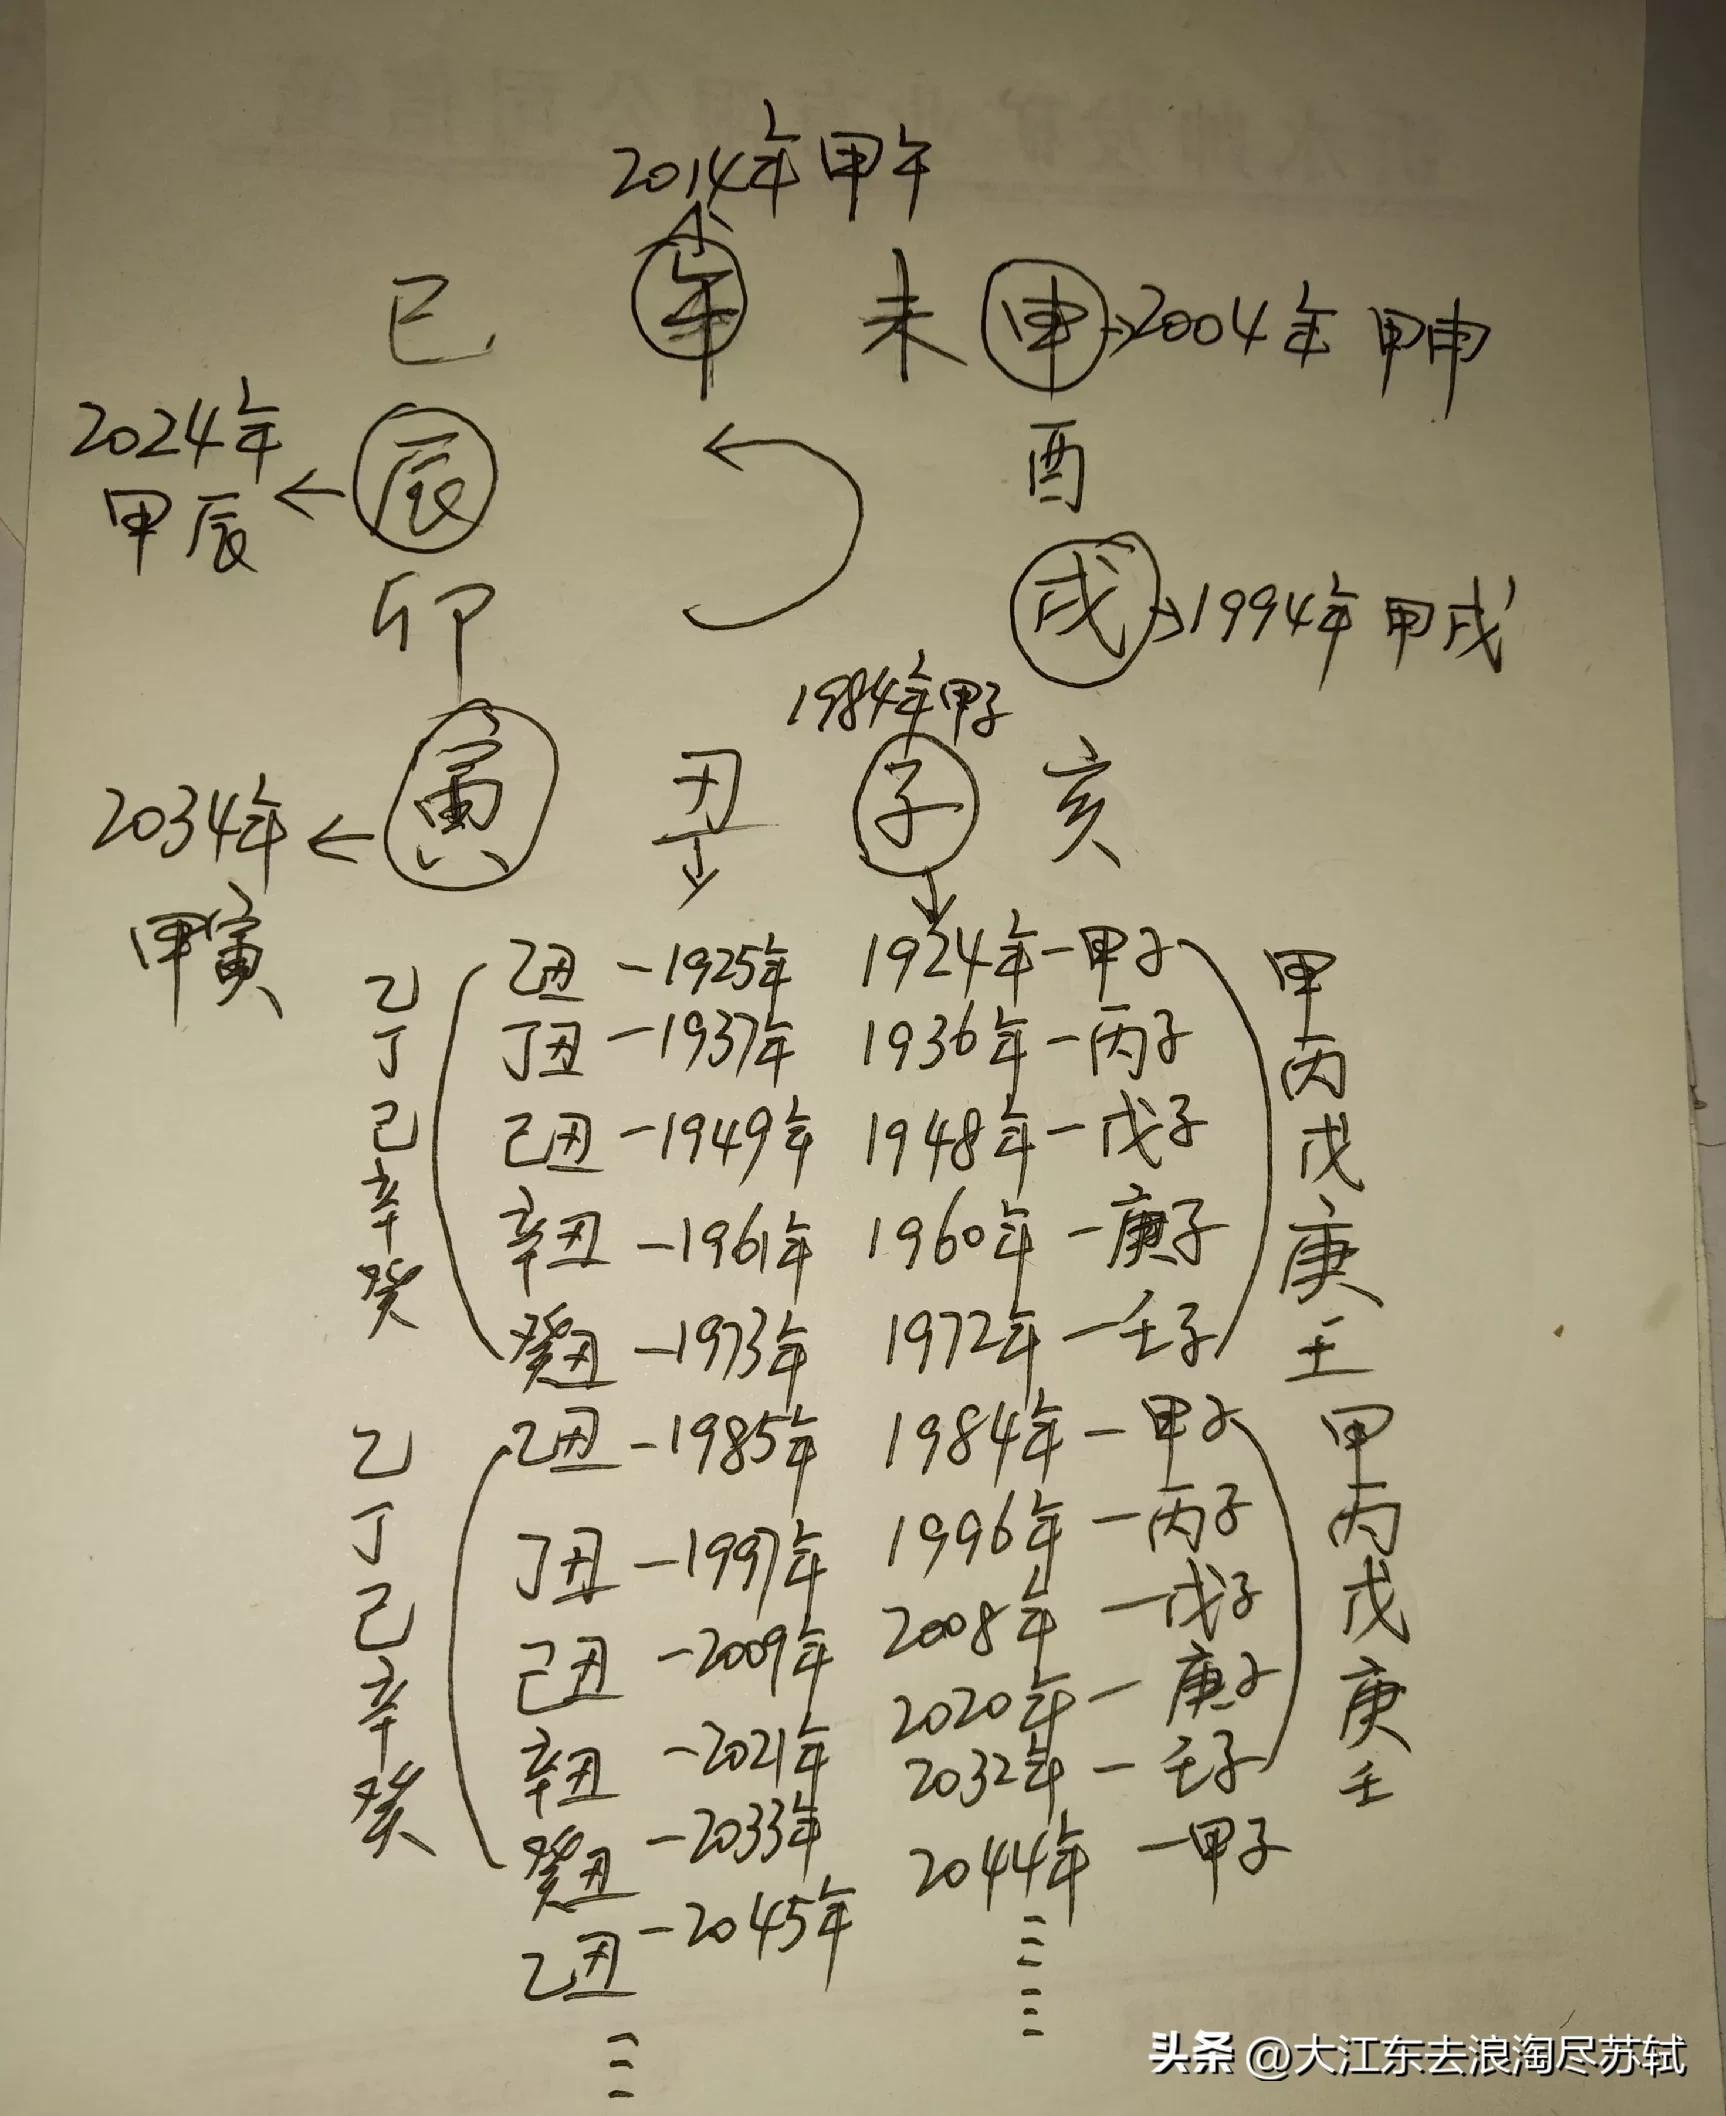 2014年甲午
巳 午 未 申 2004年甲申
2024年
甲辰
辰
酉
卯
戌 1994年甲戌
1984年甲子
寅 丑 子 亥
2034年
甲寅
乙
丁
己
辛
癸
乙丑-1925年 1924年-甲子
丁丑-1937年 1936年-丙子
己丑-1949年 1948年-戊子
辛丑-1961年 1960年-庚子
癸丑-1973年 1972年-壬子
甲
丙
戊
庚
壬
乙
丁
己
辛
癸
乙丑-1985年 1984年-甲子
丁丑-1997年 1996年-丙子
己丑-2009年 2008年-戊子
辛丑-2021年 2020年-庚子
癸丑-2033年 2032年-壬子
乙丑-2045年 2044年-甲子
甲
丙
戊
庚
壬
头条 @大江东去浪淘尽苏轼